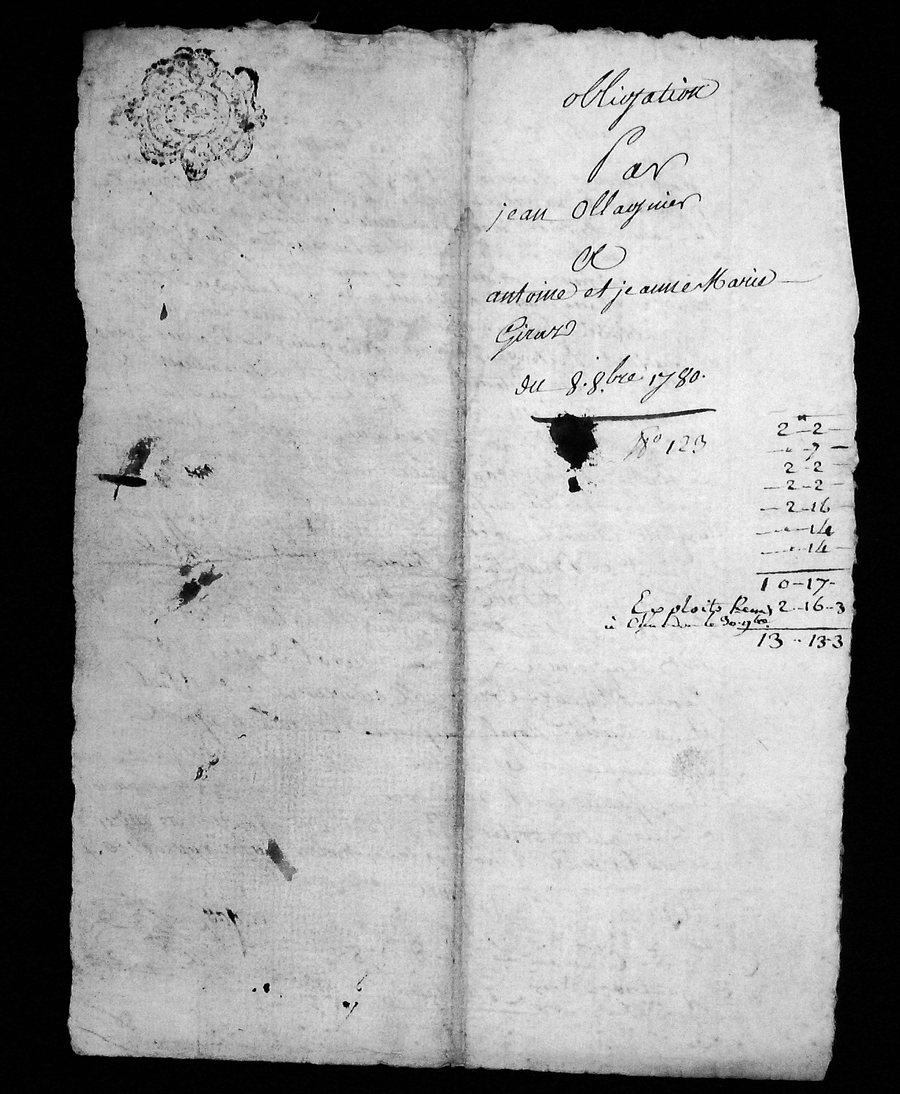 obligation
Par
jean Ollagnier
A
antoine et jeanne Marie
Girard
du 8. 8bre 1780.
N° 123
2-2-
-"-7-
2-2-
-2-2-
-2-16
-"-14
-"-14-
10-17-
Exploits 2-16-3
à le 30. 9bre.
13-13-3